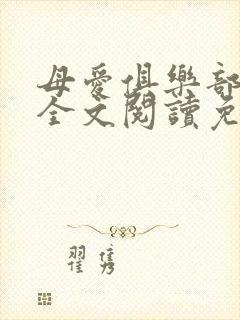 母愛俱樂部
全文閱讀免
翟隽